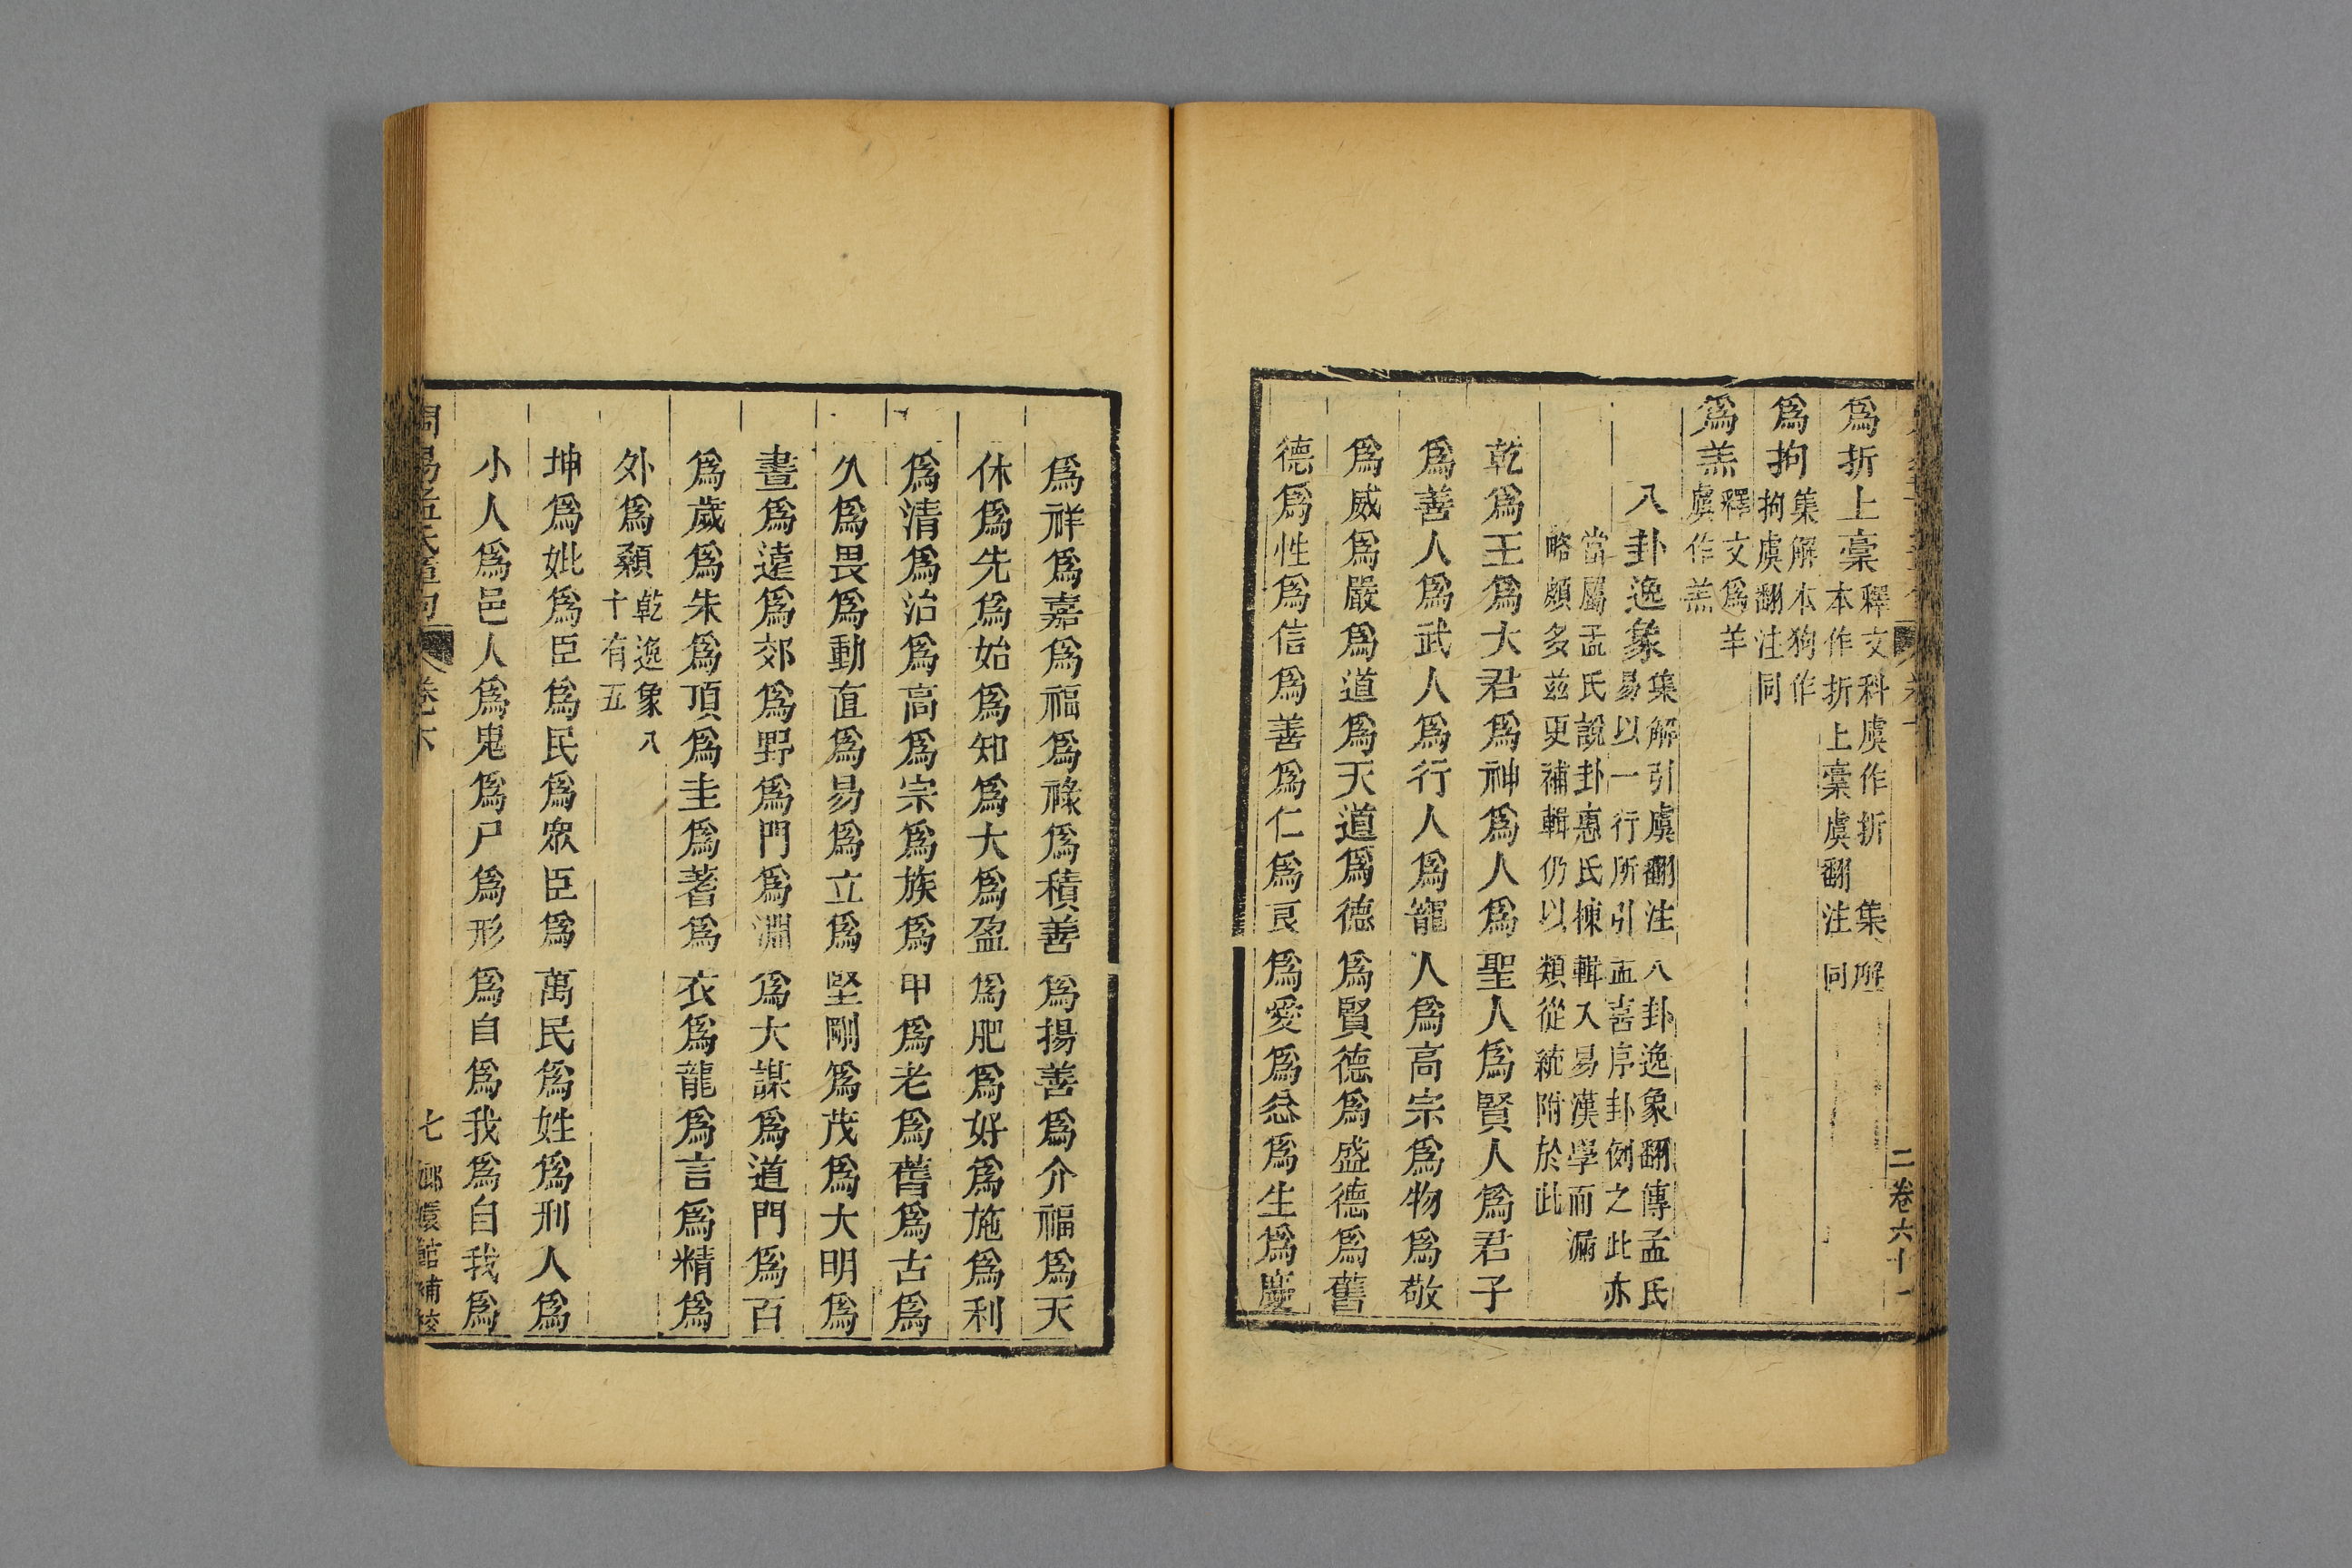 二卷六十一
爲折上稾釋文科虞作折　集解本作折上稾虞翻注同
爲拘集解本狗作拘虞翻注同
爲羔釋文爲羊虞作羔
八卦逸象集解引虞翻注八卦逸象翻傳孟氏易以一行所引孟喜序卦例之此亦
當屬孟氏說卦惠氏棟輯入易漢學而漏略頗多茲更補輯仍以類從統附於此
乾爲王爲大君爲神爲人爲聖人爲賢人爲君子
爲善人爲武人爲行人爲寵人爲高宗爲物爲敬
爲威爲嚴爲道爲天道爲德爲賢德爲盛德爲舊
德爲性爲信爲善爲仁爲良爲愛爲忿爲生爲慶
爲祥爲嘉爲福爲祿爲積善爲揚善爲介福爲天
休爲先爲始爲知爲大爲盈爲肥爲好爲施爲利
爲清爲治爲高爲宗爲族爲甲爲老爲舊爲古爲
久爲畏爲動直爲易爲立爲堅剛爲茂爲大明爲
晝爲遠爲郊爲野爲門爲淵爲大謀爲道門爲百
爲歲爲朱爲頂爲圭爲蓍爲衣爲龍爲言爲精爲
外爲顙乾逸象八十有五
坤爲妣爲臣爲民爲眾臣爲萬民爲姓爲刑人爲
小人爲邑人爲鬼爲尸爲形爲自爲我爲自我爲
周易孟氏章句　卷下　七　嫏嬛館補校